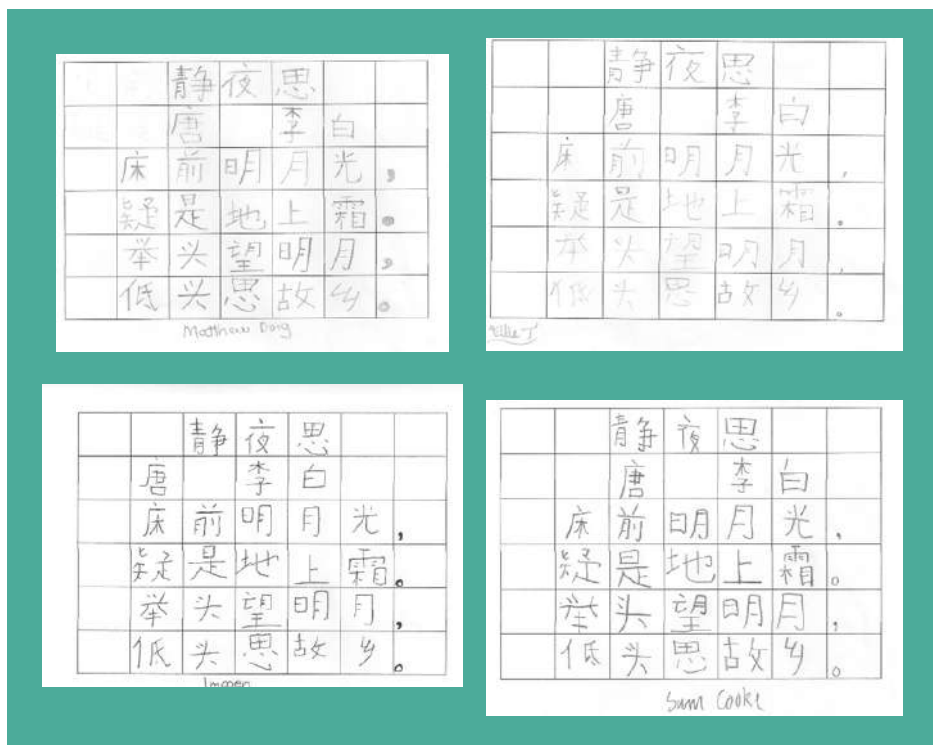 静夜思
唐 李白
床前明月光，
疑是地上霜。
举头望明月，
低头思故乡。
Matthew Doig
静夜思
唐 李白
床前明月光，
疑是地上霜。
举头望明月，
低头思故乡。
Ellie T
静夜思
唐 李白
床前明月光，
疑是地上霜。
举头望明月，
低头思故乡。
Imogen
静夜思
唐 李白
床前明月光，
疑是地上霜。
举头望明月，
低头思故乡。
Sam Cooke